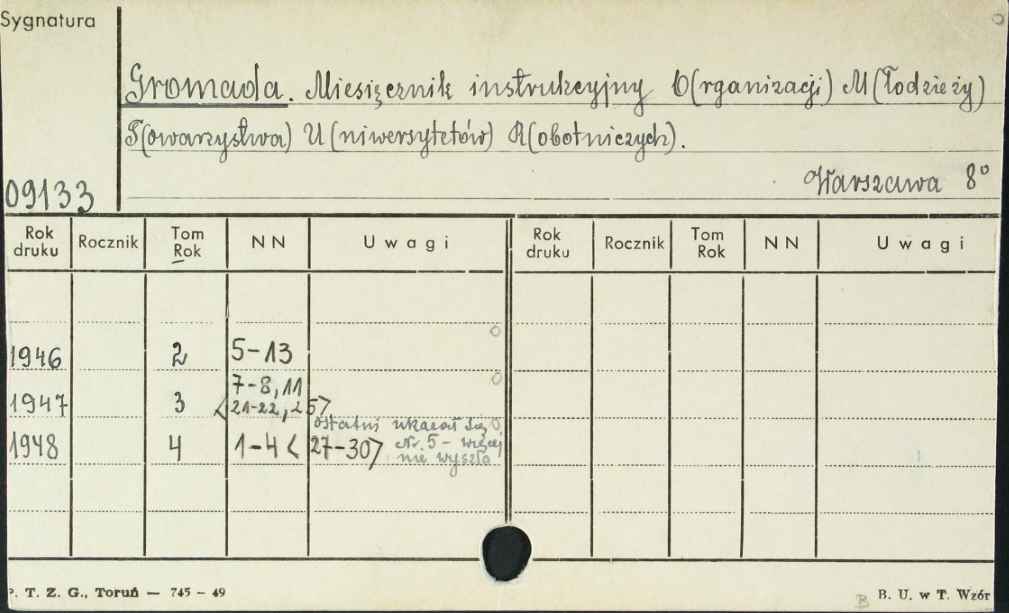 Sygnatura
Gromada. Miesięcznik instrukcyjny O(rganizacji) M(łodzieży)
T(owarzystwa) U(niwersytetów) R(obotniczych).
Warszawa 8°
09133
Rok druku Rocznik Tom Rok NN Uwagi Rok druku Rocznik Tom Rok NN Uwagi
1946 2 5-13
7-8, 11
1947 3 <21-22, 25>
ostatni ukazał się
1948 4 1-4 <27-30> Nr. 5 - więcej
nie wyszło
P. T. Z. G., Toruń — 745 - 49
B B. U. w T. Wzór